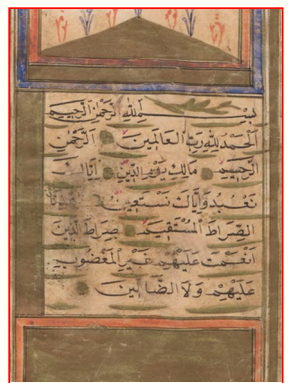 بسم الله الرحمن الرحيم
الحمد لله رب العالمين الرحمن
الرحيم مالك يوم الدين اياك
نعبد واياك نستعين اهدنا
الصراط المستقيم صراط الذين
انعمت عليهم غير المغضوب
عليهم ولا الضالين